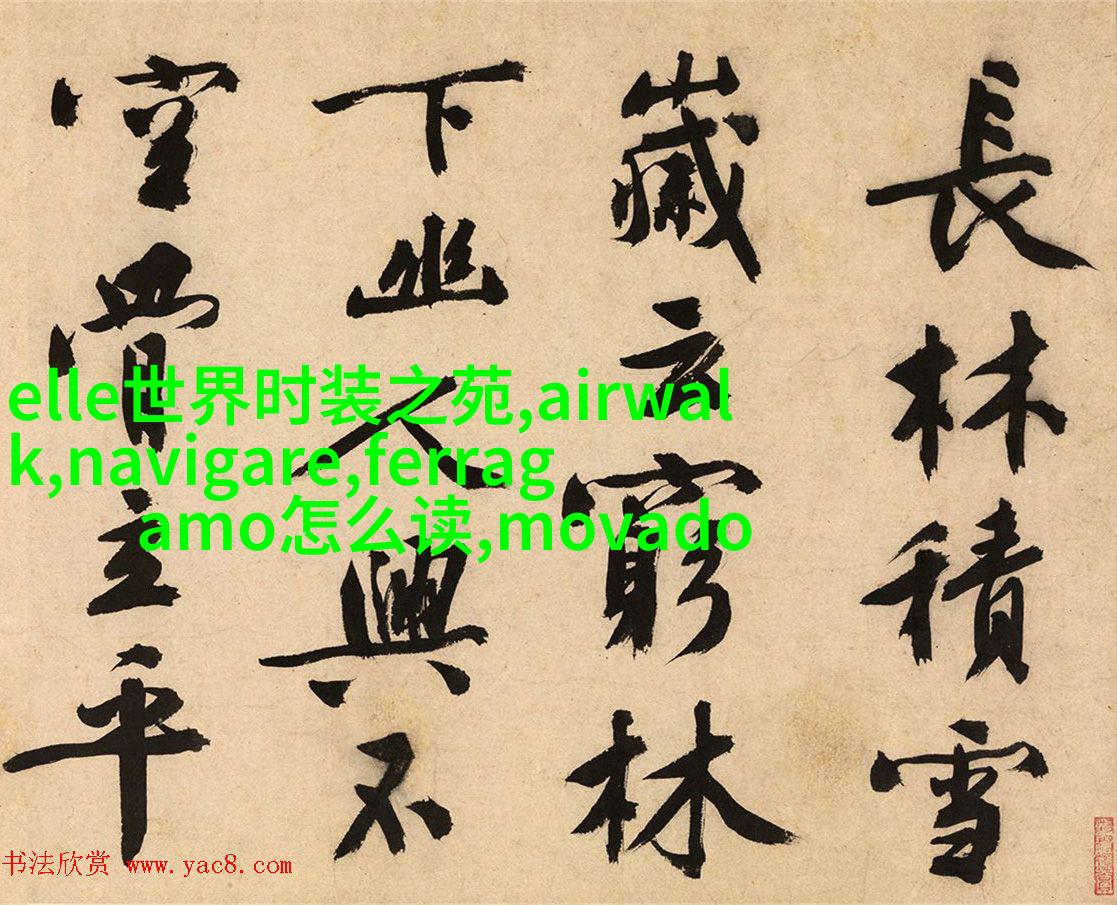 長林積雪
嵗方窮林
下幽人興不
空骨立平
elle世界时装之苑,airwal
k,navigare,ferrag
amo怎么读,movado
书法欣赏 www.yac8.com